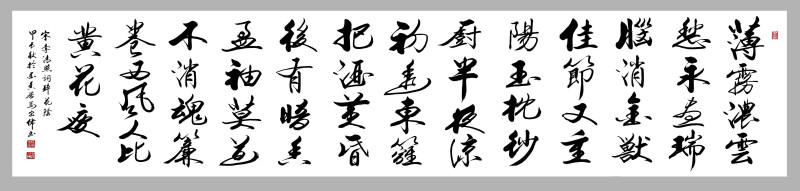 薄霧濃雲
愁永晝瑞
腦消金獸
佳節又重
陽玉枕紗
厨半夜涼
初透東籬
把酒黄昏
後有暗香
盈袖莫道
不消魂簾
卷西風人比
黄花瘦
宋李清照詞醉花陰
甲午秋於